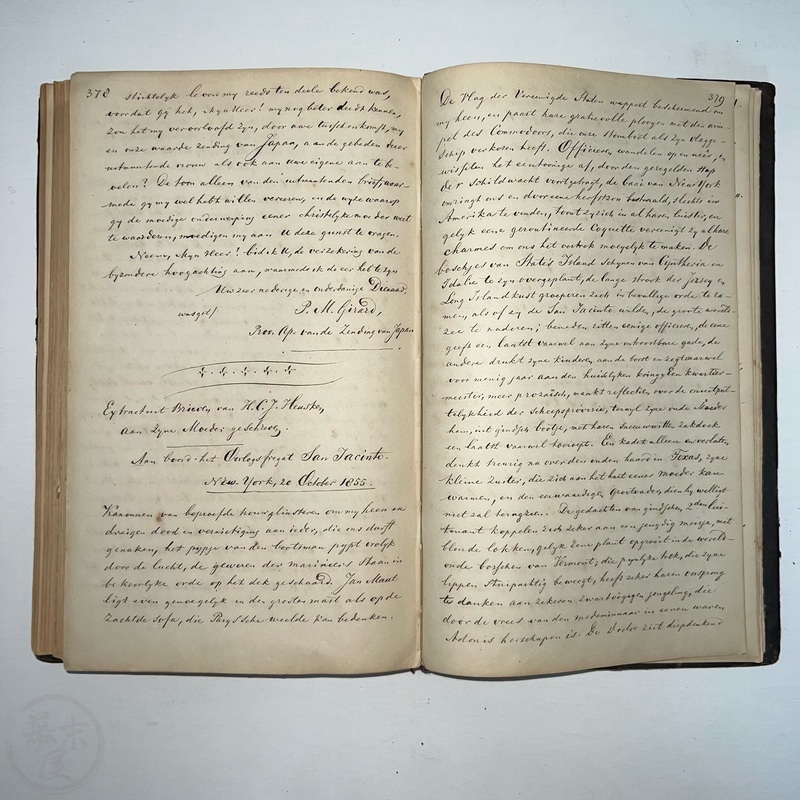 378
stichtelyk leven my reeds ten deele bekend was,
voor dat gy het, Myn Heer! my nog beter deedt kennen,
zou het my veroorloofd zyn, door uwe tusschenkomst, my
en onze waarde zending van Japan, aan de gebeden dezer
uitmuntende vrouw als ook aan uwe eigene aan te be-
velen? De toon alleen van den uitmuntenden brief, waar-
mede gy my wel hebt willen vereeren, en de wyze waarop
gy de moedige onderneming eener christelyke moeder weet
te waarderen, moedigen my aan U deze gunst te vragen.
Neem, Myn Heer! bid ik U, de verzekering van de
byzondere hoogachting aan, waarmede ik de eer heb te zyn
Uw zeer nederige en onderdanige Dienaar,
(was get.) P. M. Girard,
Prov. Ap. van de Zending van Japan
Extract uit Brieven van H. C. J. Heusken,
aan Zyne Moeder geschreven.
Aan boord het Oorlogsfregat San Jacinto.
New. York, 20 October 1855.
Kanonnen van beproefde houwglinsteren om my heen en
dreigen dood en vernietiging aan ieder, die ons durft
genaken, het pypje van den bootsman pypt vrolyk
door de lucht, de geweren der mariniers staan in
bekoorlyke orde op het dek geschaard. Jan Maat
ligt even genoegelyk in den grooten mast als op de
zachtste sofa, die Parysche weelde kan bedenken.
379
De Vlag der Vereenigde Staten wappert beschermend om
my heen, en paart hare gratievolle plooijen met den wim-
pel des Commodoors, die onze stoomboot als zyn vlagge-
schip verkoren heeft. Officieren wandelen op en neer, en
wisselen het eentoonige af, door den geregelden stap
der schildwacht voortgebragt, de baai van New York
omringt ons en door eene herfstzon bestraald, slechts in
Amerika te vinden, toont zy zich in al haren luister, en
gelyk eene geroutineerde Coquette vereenigt zy al hare
charmes om ons het vertrek moeyelyk te maken. De
boschjes van States Island schynen van Cyntheria en
Idalie te zyn overgeplant, de lange strook der Jersey en
Long Island kust groeperen zich in bevallige orde te za-
men, als of zy de San Jacinto wilde, de groote wereld-
zee te naderen; beneden zitten eenige officieren, de eene
geeft een laatst vaarwel aan zyne onkostbare gade, de
andere drukt zyne kinderen aan de borst en zegt vaarwel
voor menig jaar aan den huisselyken kring; Een kwartier-
meester, meer prozaisch, maakt reflectien over de onuitput-
telykheid der scheepsprovisie, terwyl zyne oude Moeder
hem, uit gindsch bootje, met haren sneeuwwitte zakdoek
een laatst vaarwel toeroept. Een kadet alleen en verlaten,
denkt treurig na over den ouden haard in Texas, zyne
kleine zuster, die zich aan het hart eener moeder kan
warmen, en den eerwaardigen Grootvader, dien hy welligt
niet zal herzien. De gedachten van gindschen 2den lui-
tenant koppelen zich zeker aan een jeugdig meisje, met
blonde lokken, gelyk eene plant opgroeit in de wereld-
oude bosschen van Vermont; die pynlyke trek, die zyne
lippen stuipachtig beweegt, heeft zeker haren oorsprong
te danken aan zekeren zwartoogigen jongeling, die
door de vrees van den medeminnaar in eenen waren
Adonis herschapen is. De Doctor ziet diepdenkend